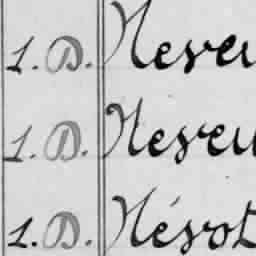 1. D. Neveu
1. D. Neveu
1. D. Névot